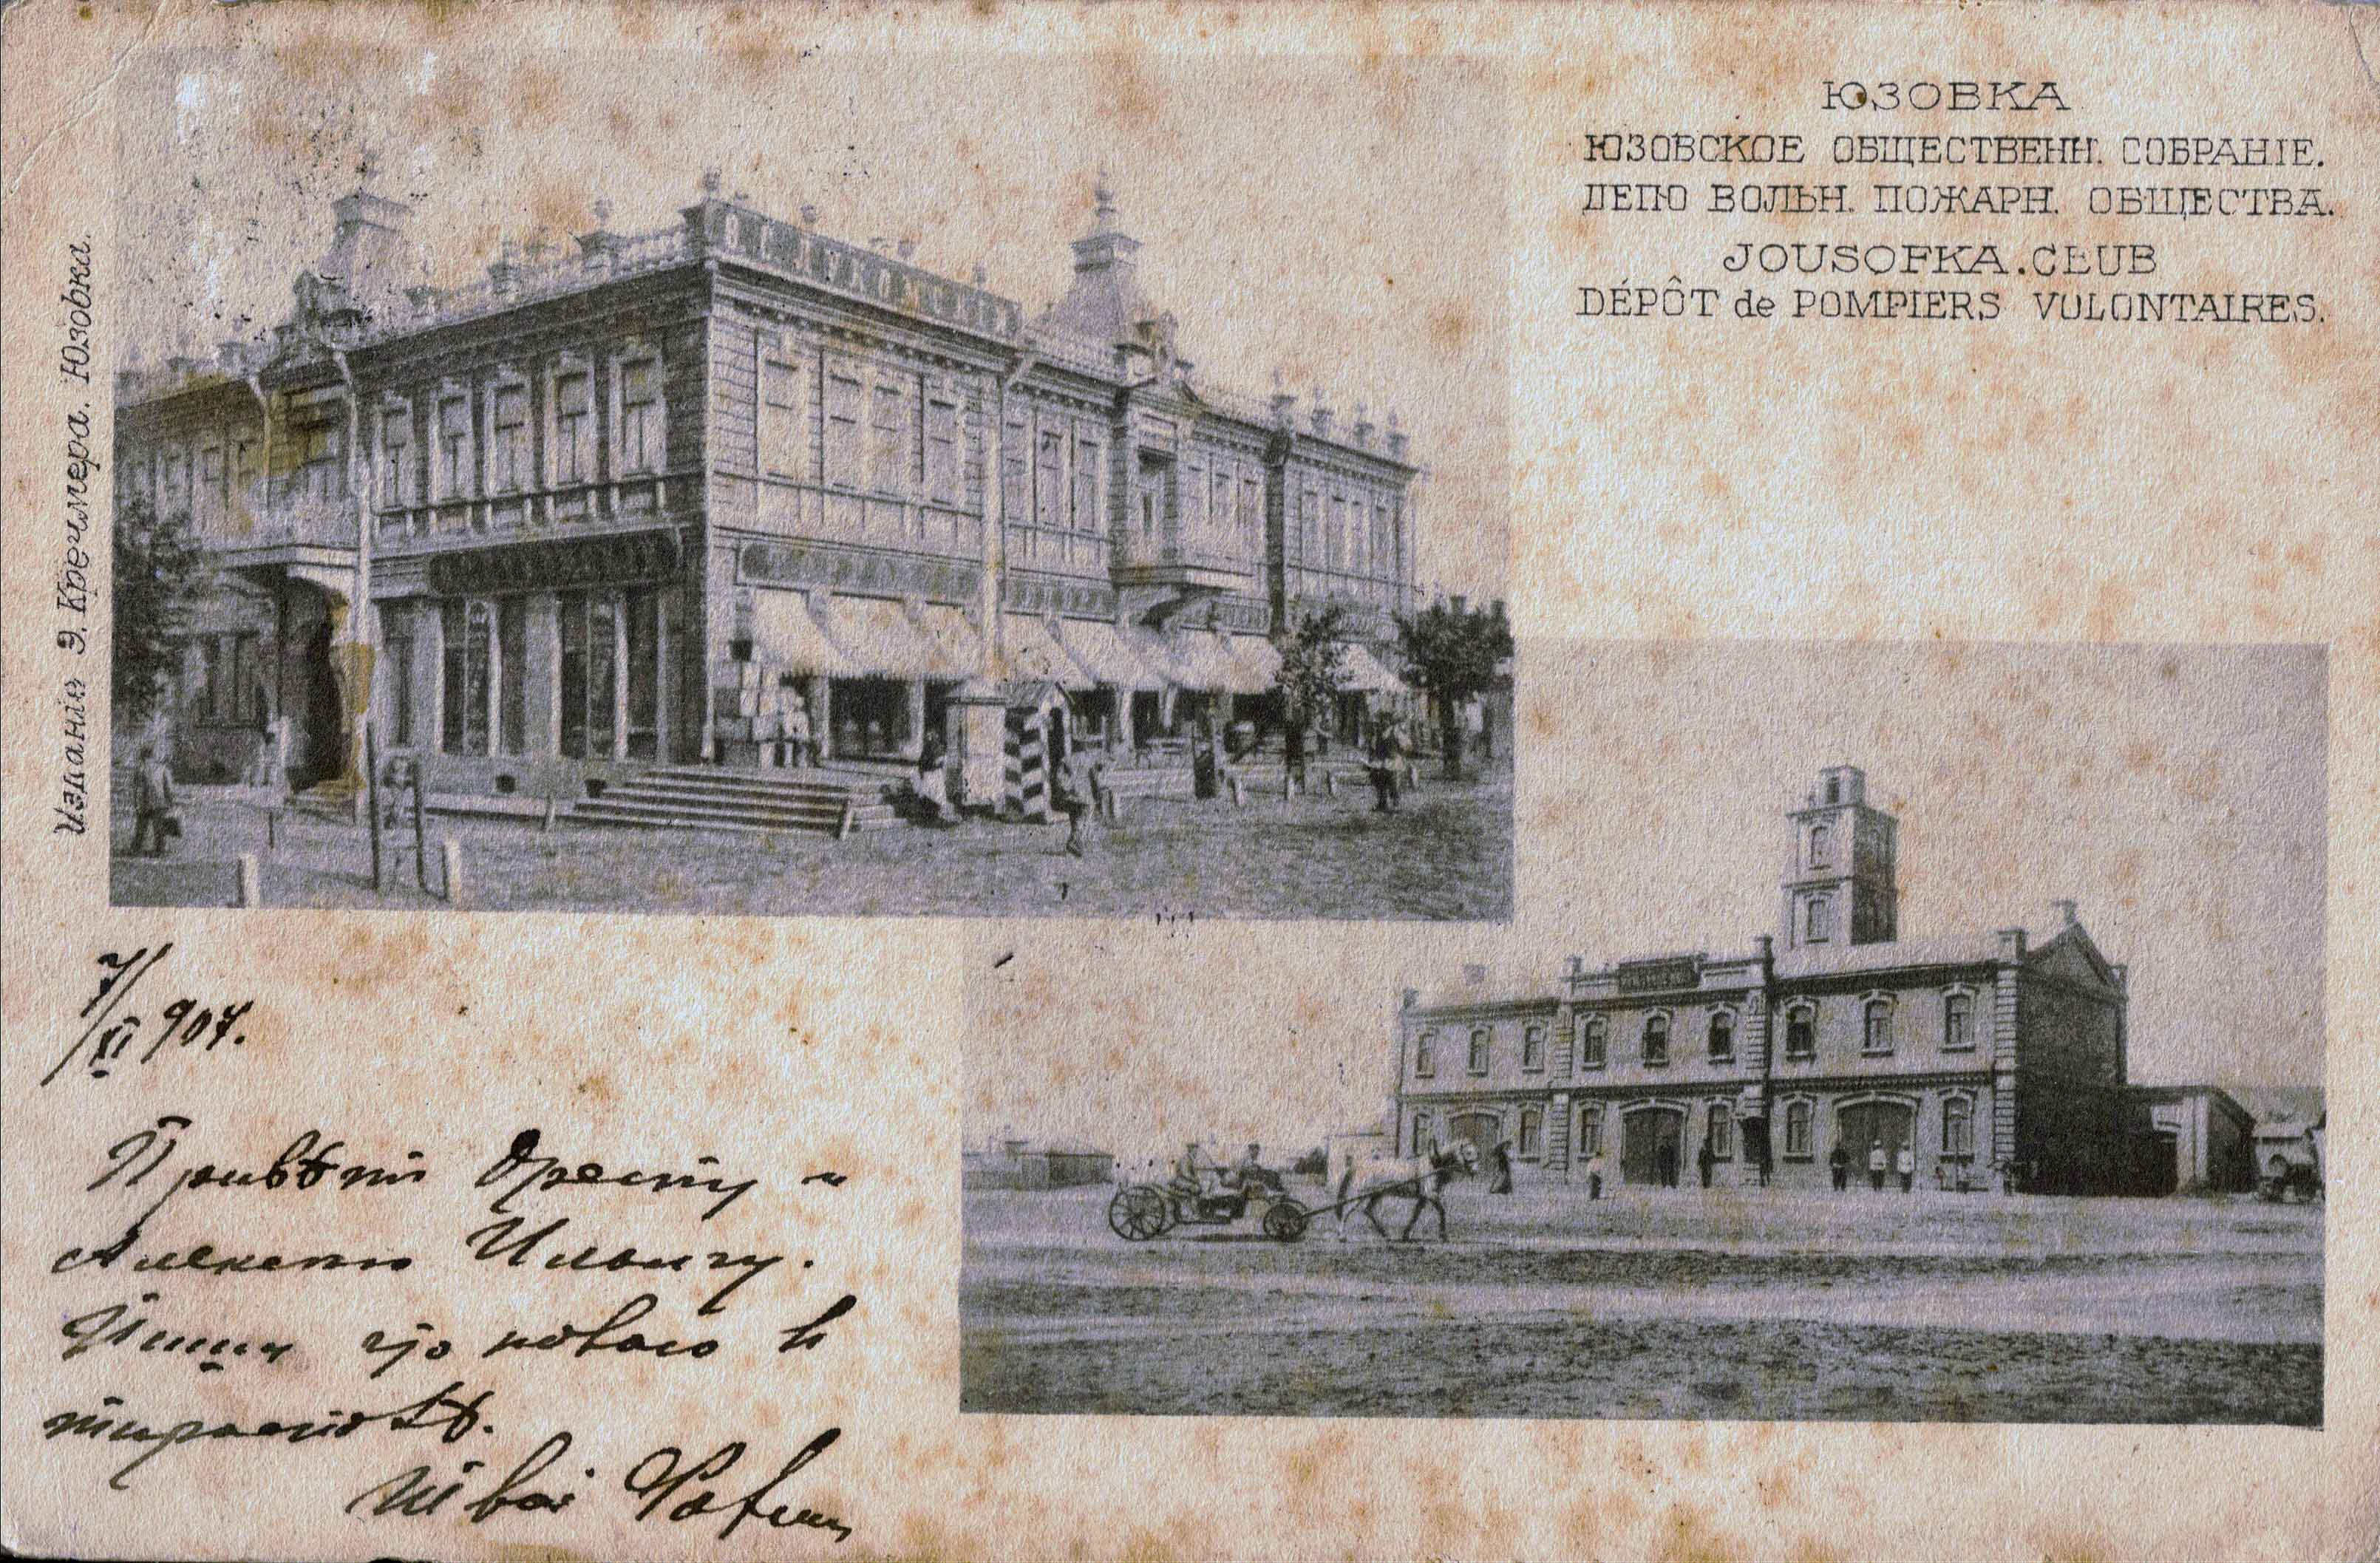 ЮЗОВКА
ЮЗОВСКОЕ ОБЩЕСТВЕНН. СОБРАНІЕ.
ДЕПО ВОЛЬН. ПОЖАРН. ОБЩЕСТВА.
JOUSOFKA.CLUB
DÉPÔT de POMPIERS VOLONTAIRES.
Изданіе Э. Кречмера. Юзовка.
7/XI 907.
Привѣтъ Оресту и
Алексѣю Ильичу.
Пиши что новаго в
Твой